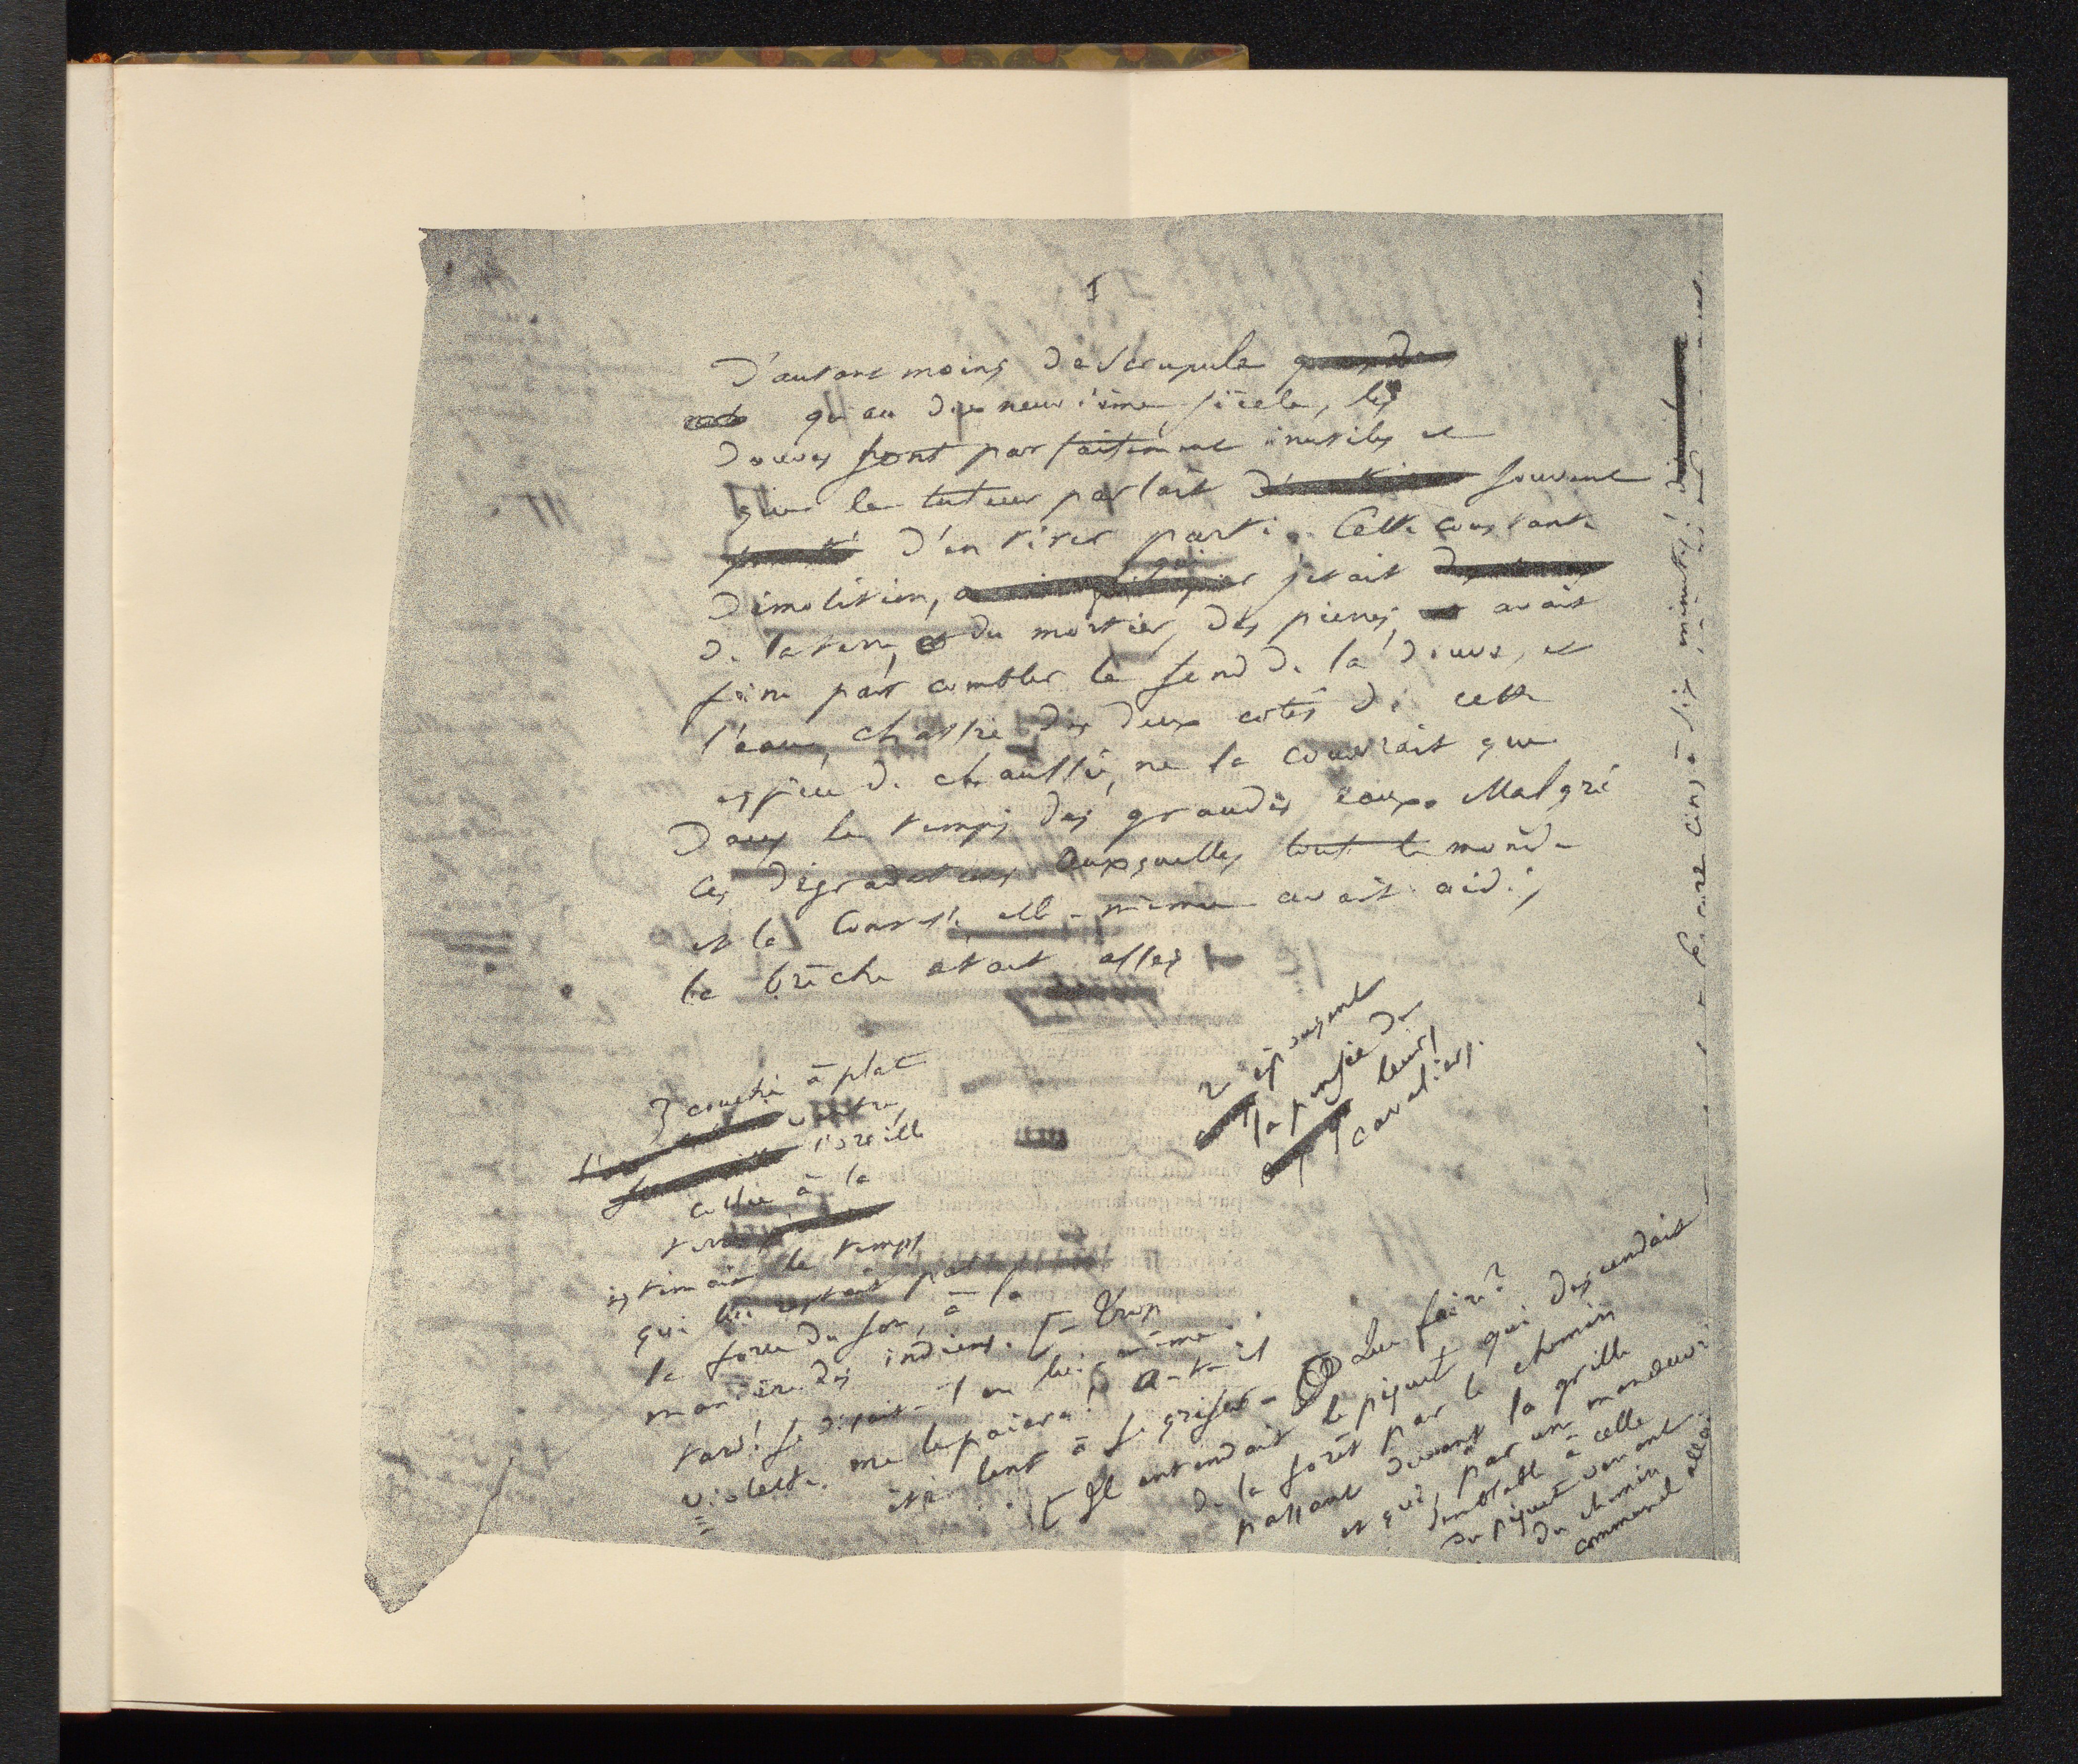 I
D'autant moins de scrupule
qu'au dix neuvième siècle, les
douves sont parfaitement inutiles et
que le tuteur parlait souvent
d'en tirer parti. Cette constante
démolition, qui jetait
de la terre, du mortier, des pierres, avait
fini par combler le fond de la douve, et
l'eau, chassée des deux cotés de cette
espèce de chaussée, ne la couvrait que
dans le temps des grandes eaux. Malgré
ces dégradations auxquelles tout le monde
et la Comtesse elle-même avait aidé,
la brèche était assez
et épousant
la pensée de
leurs
cavaliers.
} couché à plat
ventre,
l'oreille
collée à la
terre
estimait le temps
qui lui restait par
la force du son, à la
manière des indiens. [- Trop
tard! se disait-il en lui-même.
Violette me le paiera! a-t-il
été lent à se griser - Que faire?
[Il entendait le piquet qui descendait
de la forêt par le chemin
passant devant la grille
et qui, par une manœuvre
semblable à celle
du piquet venant
du chemin
communal allai
encore cinq à six minutes!